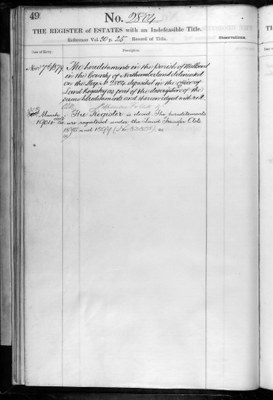 49
No. 2804
THE REGISTER of ESTATES with an Indefeasible Title.
Reference Vol. 30 p. 25 Record of Title.
Date of Entry.
Description.
Observations.
Nov 17th 1879 The hereditaments in the Parish of
in the County of Northumberland delineated
on the Map No 2804 deposited in the office of
Land Registry as part of the description of the
same hereditaments and thereon edged with red.
March The Register is closed. The hereditaments
are registered under the Land Transfer Acts
1875 and 1897